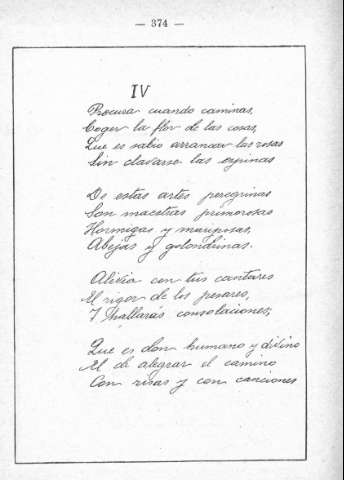 — 374 —
IV
Procura cuando caminas,
Coger la flor de las cosas,
Que es sabio arrancar las rosas
Sin clavarse las espinas
De estas artes peregrinas
Son maestras primorosas
Hormigas y mariposas,
Abejas y golondrinas.
Alivia con tus cantares
El rigor de los pesares,
Y hallarás consolaciones;
Que es don humano y divino
El de alegrar el camino
Con risas y con canciones